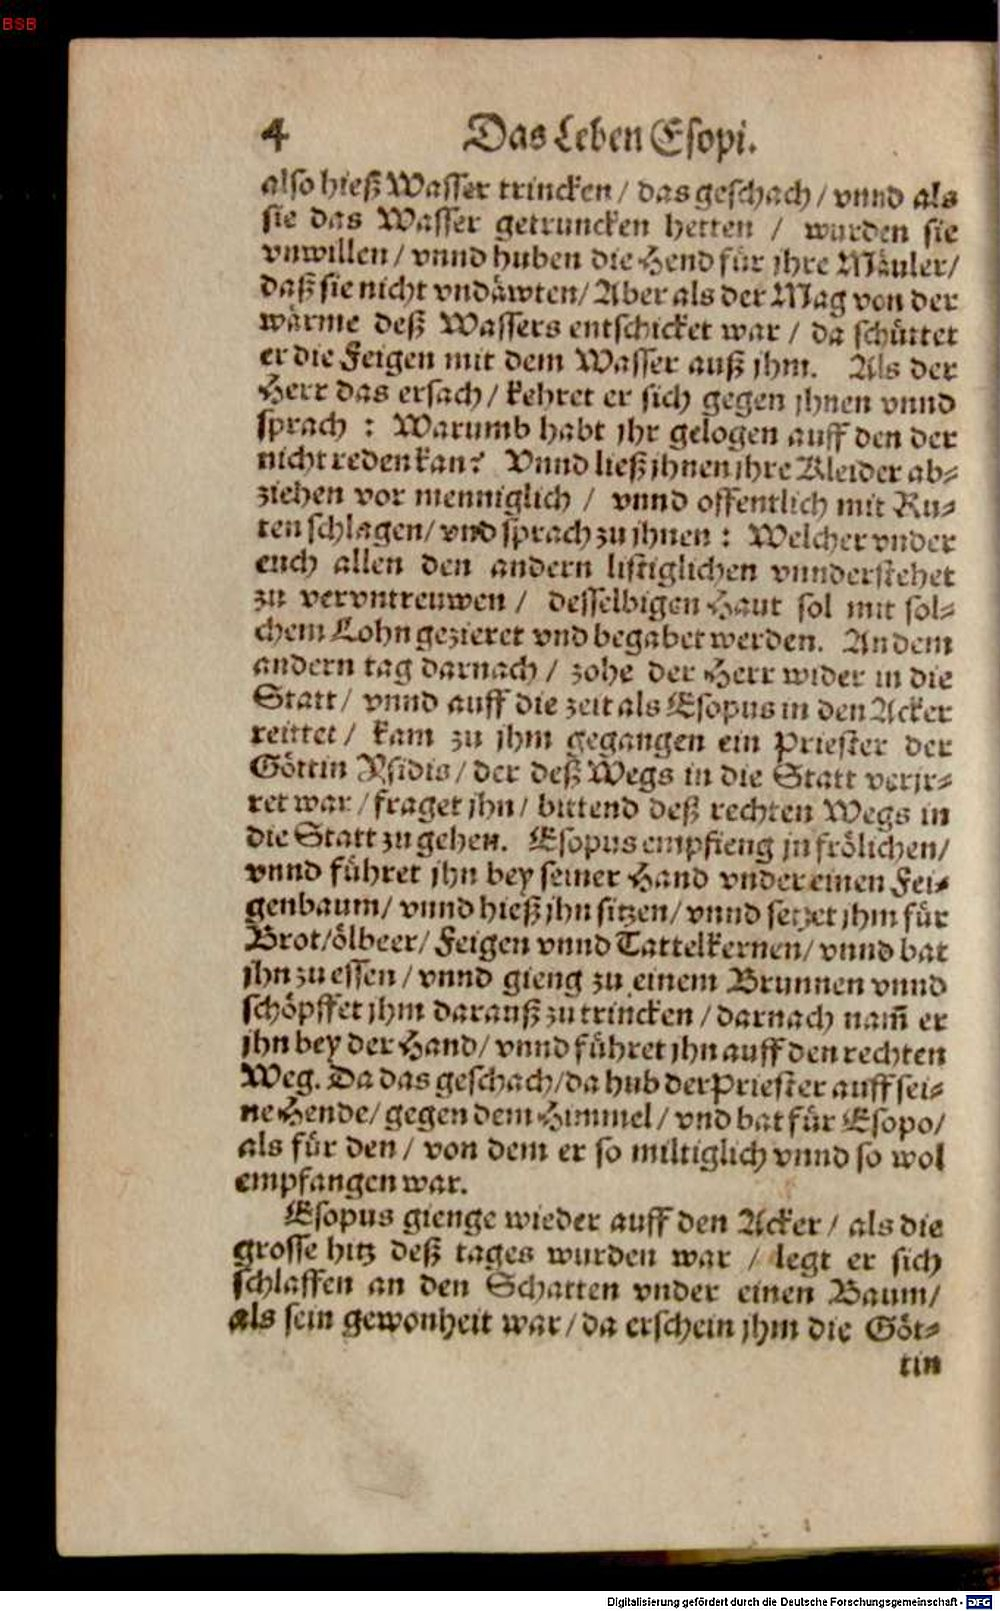 BSB
4 Das Leben Esopi.
also hieß Wasser trincken / das geschach / vnnd als
sie das Wasser getruncken hetten / wurden sie
vnwillen / vnnd huben die Hend für jhre Mäuler /
daß sie nicht vndäwten / Aber als der Mag von der
wärme deß Wassers entschicket war / da schüttet
er die Feigen mit dem Wasser auß jhm. Als der
Herr das ersach / kehret er sich gegen jhnen vnnd
sprach : Warumb habt jhr gelogen auff den der
nicht reden kan? Vnnd ließ jhnen jhre Kleider ab-
ziehen vor menniglich / vnnd offentlich mit Ru-
ten schlagen / vnd sprach zu jhnen : Welcher vnder
euch allen den andern listiglichen vnnderstehet
zu vervntreuwen / desselbigen Haut sol mit sol-
chem Lohn gezieret vnd begabet werden. An dem
andern tag darnach / zohe der Herr wider in die
Statt / vnnd auff die zeit als Esopus in den Acker
reittet / kam zu jhm gegangen ein Priester der
Göttin Ysidis / der deß Wegs in die Statt verjr-
ret war / fraget jhn / bittend deß rechten Wegs in
die Statt zu gehen. Esopus empfieng jn frölichen /
vnnd führet jhn bey seiner Hand vnder einen Fei-
genbaum / vnnd hieß jhn sitzen / vnnd setzet jhm für
Brot / ölbeer / Feigen vnnd Tattelkernen / vnnd bat
jhn zu essen / vnnd gieng zu einem Brunnen vnnd
schöpffet jhm darauß zu trincken / darnach nam̃ er
jhn bey der Hand / vnnd führet jhn auff den rechten
Weg. Da das geschach / da hub der Priester auff sei-
ne Hende / gegen dem Himmel / vnd bat für Esopo /
als für den / von dem er so miltiglich vnnd so wol
empfangen war.
Esopus gienge wieder auff den Acker / als die
grosse hitz deß tages wurden war / legt er sich
schlaffen an den Schatten vnder einen Baum /
als sein gewonheit war / da erschein jhm die Göt-
tin
Digitalisierung gefördert durch die Deutsche Forschungsgemeinschaft - DFG